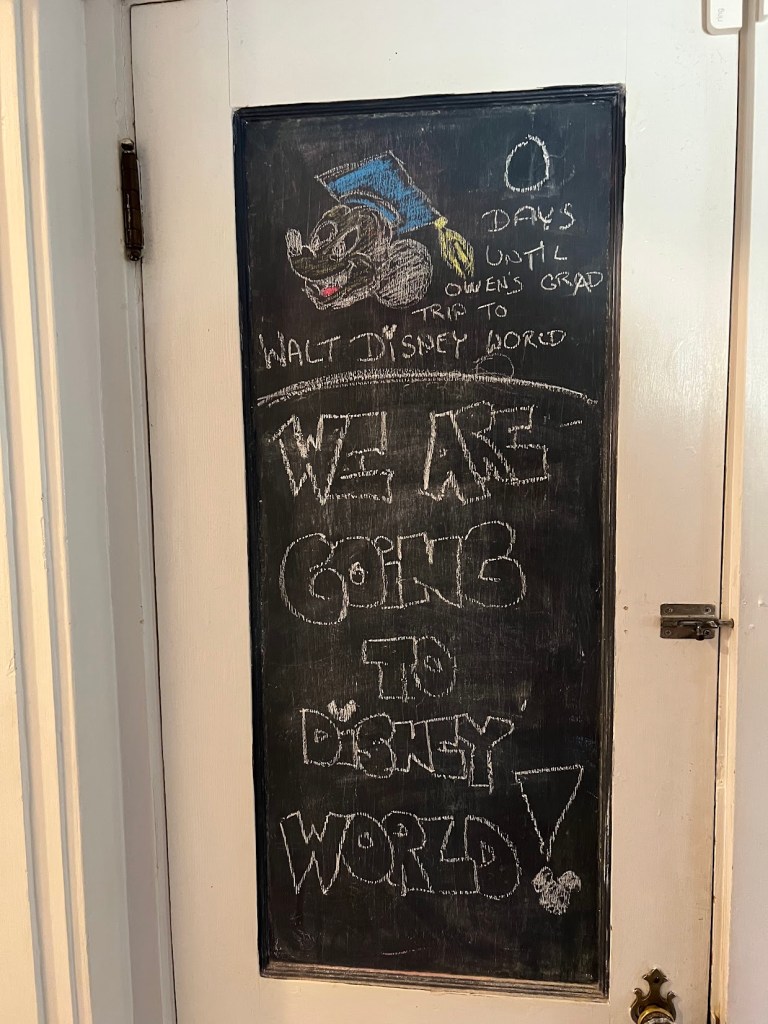 0
DAYS
UNTIL
OWEN'S GRAD
TRIP TO
WALT DiSNEY WORLD
WE ARE
GOiNG
TO
DiSNEY
WORLD!
ring